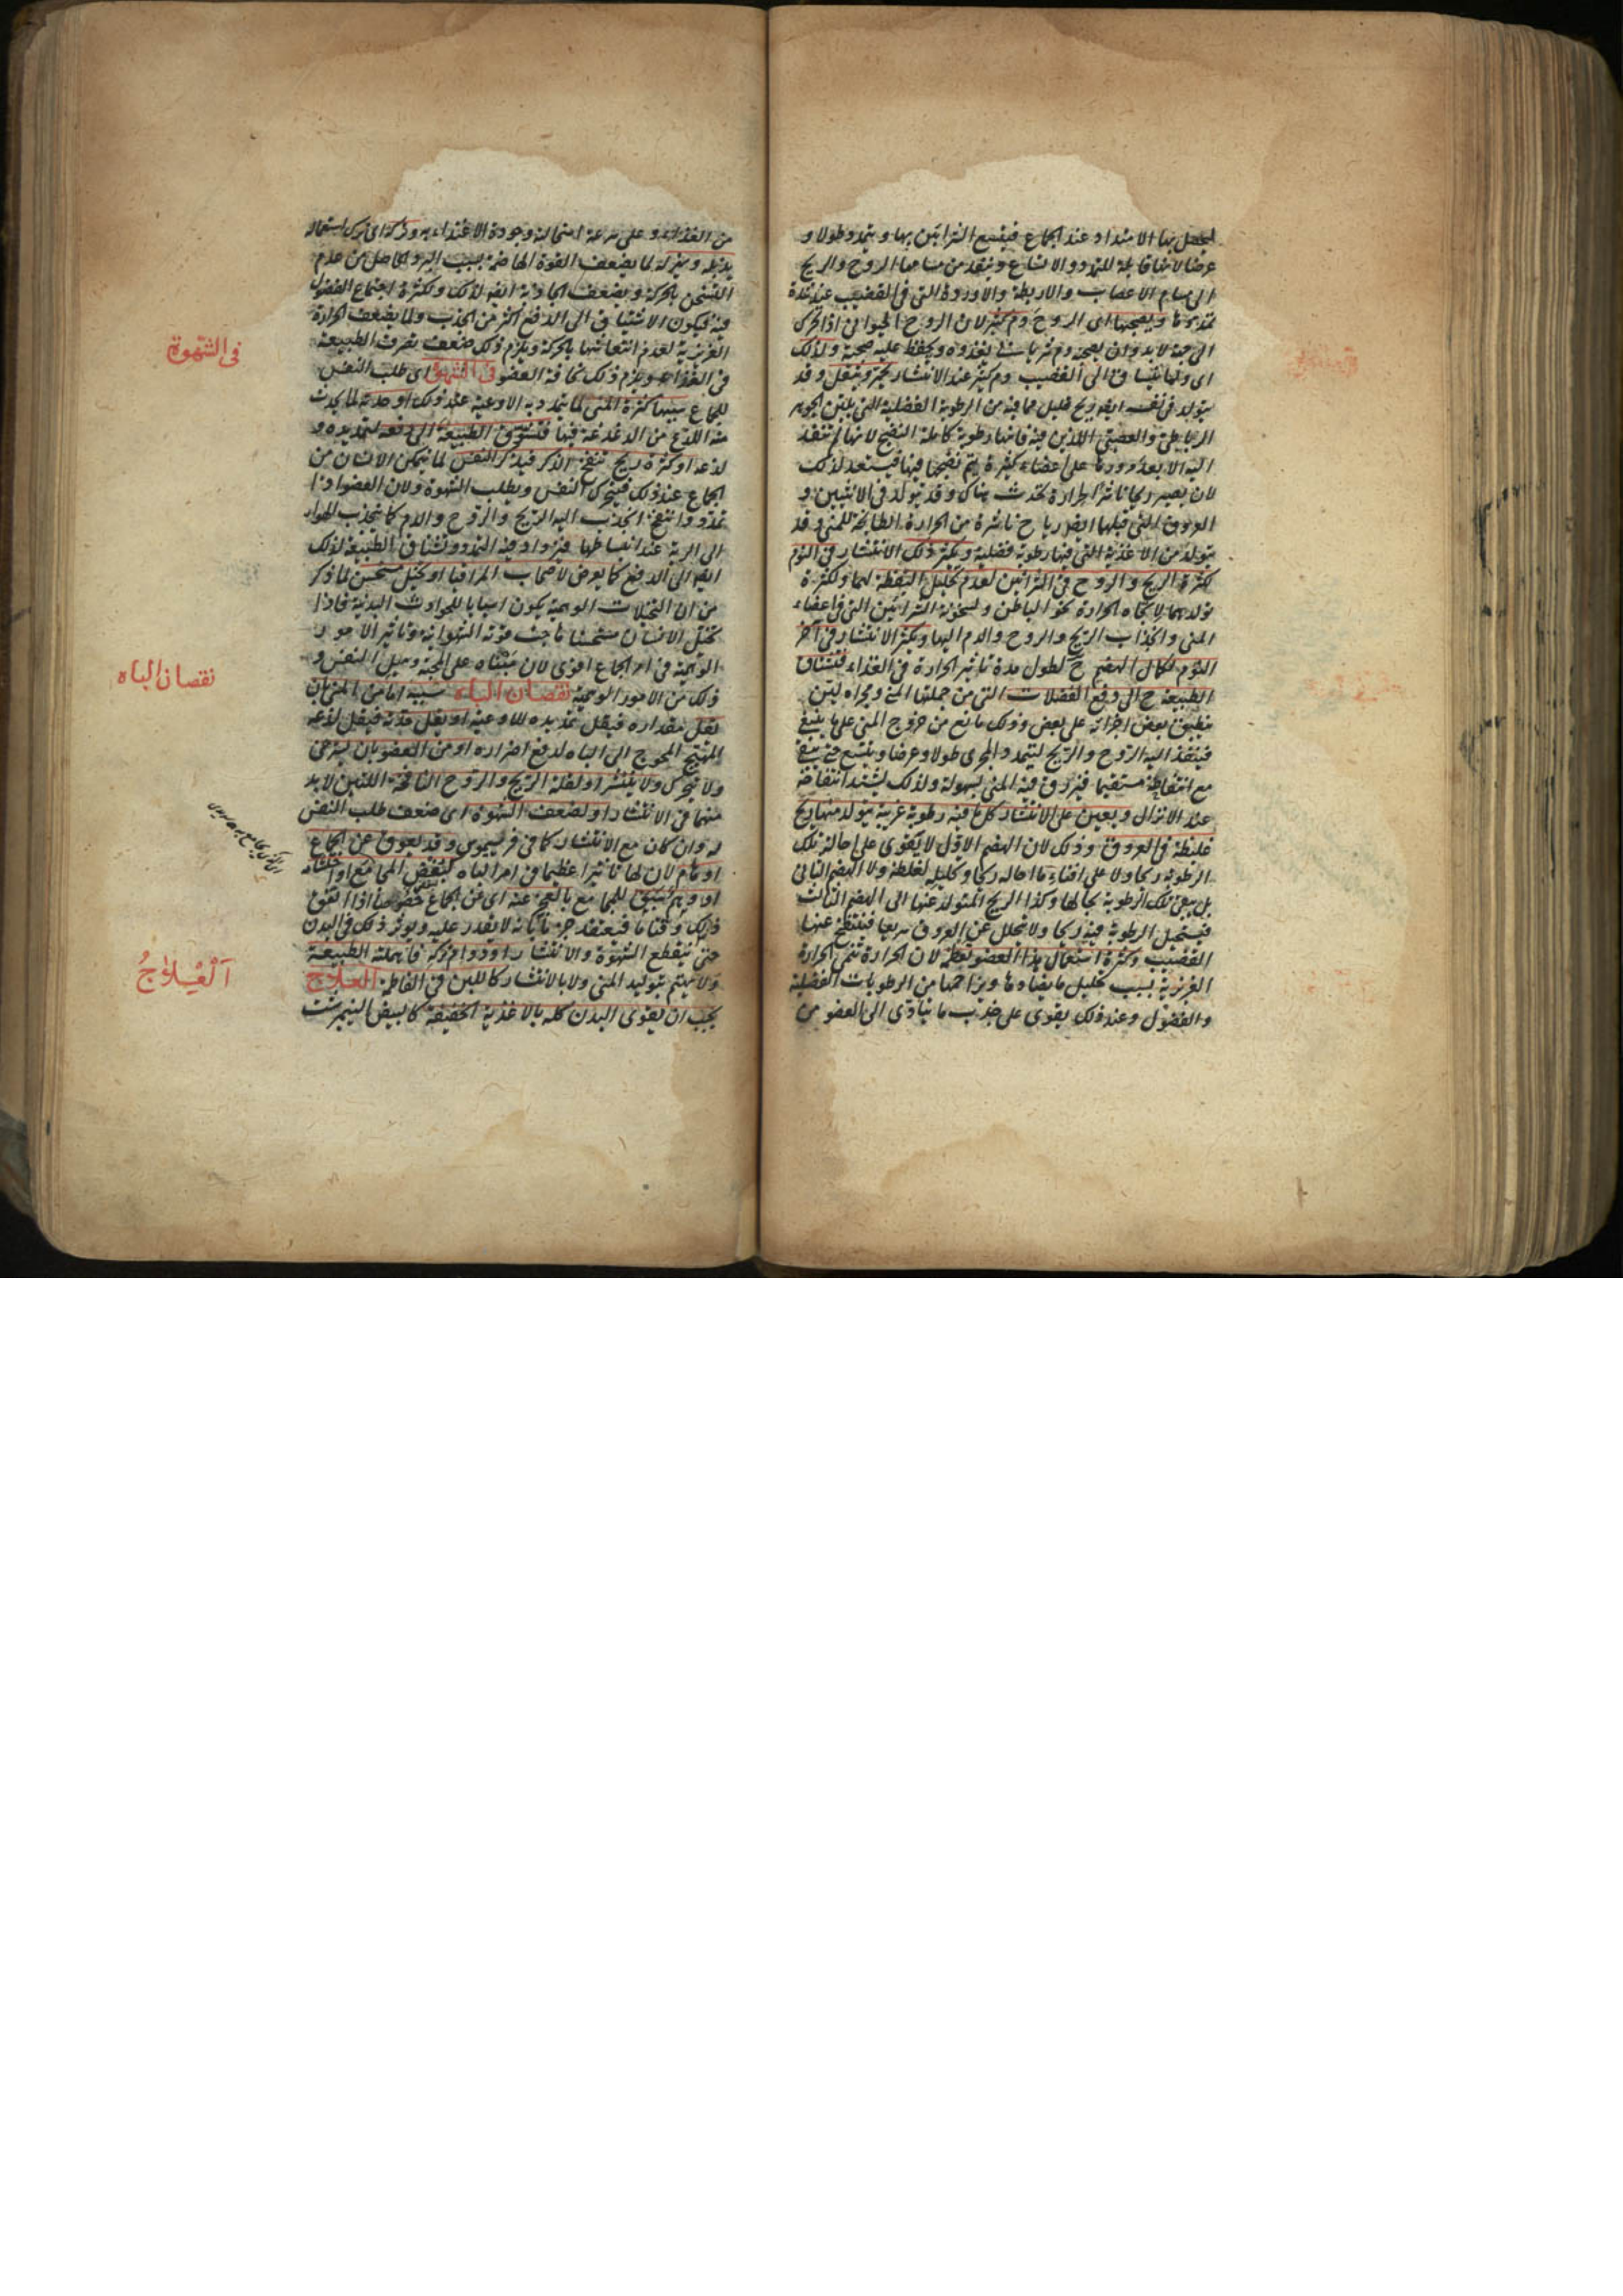 يحصل بها الامتداد عند الجماع فيتسع الشرايين بها ويتمدد طولا و
عرضا لانها قابلة للتمدد والاتساع وينفذ من مسامها الروح والريح
الى مسام الاعصاب والاربطة والاوردة التي في القضيب عند شدة
تمددها ويصحبها اى الروح دم كثير لان الروح الحيواني اذا تحرك
الى جهة لا بد وان يصحبه دم شرياني يغذوه ويحفظ عليه صحته ولذلك
اى ولما ينساق الى القضيب دم كثير عند الانتشار يحمر ويثقل وقد
يتولد في نفسه ايضا ريح قليل مما فيه من الرطوبة الفضلية التي يلين الجوهر
الرباطي والعصبي اللذين فيه فانها رطوبة كاملة النضج لانها لم تنفذ
اليه الا بعد ورودها على اعضاء كثيرة يتم نضجها فيها فيستعد لذلك
لان يصير ريحا ناشرا لحرارة تحدث هناك وقد يتولد في الانثيين و
العروق التي قبلها ايضا رياح ناشرة من الحرارة الطابخة للمني وقد
يتولد من الاغذية التي فيها رطوبة فضلية ويكثر ذلك الانتشار في النوم
لكثرة الريح والروح في الشرايين لعدم تحليل اليقظة لهما ولكثرة
تولدهما لاتجاه الحرارة نحو الباطن ولسخونة الشرايين التي في اعضاء
المني وانجذاب الريح والروح والدم اليها ويكثر الانتشار في آخر
النوم لكمال الهضم ح لطول مدة تاثير الحرارة في الغذاء فتشتاق
الطبيعة ح الى دفع الفضلات التي من جملتها المني ومجراه لين
منطبق بعض اجزائه على بعض وذلك مانع من خروج المني على ما ينبغي
فينفذ اليه الروح والريح ليتمدد المجرى طولا وعرضا ويتسع حتى يبقى
مع انتفاخه مستقيما فيزرق فيه المني بسهولة ولذلك يشتد انتفاخه
عند الانزال ويعين على الانتشار كل ما فيه رطوبة غريبة يتولد منها ريح
غليظة في العروق وذلك لان الهضم الاول لا يقوى على احالة تلك
الرطوبة ريحا ولا على افناء ما احاله ريحا وتحليله لغلظه ولا الهضم الثاني
بل يبقى تلك الرطوبة بحالها وكذا الريح المتولد عنها الى الهضم الثالث
فيستحيل الرطوبة فيه ريحا ولا تتحلل عن العروق سريعا فينتفخ عنها
القضيب وكثرة استعمال هذا العضو تعظمه لان الحركة تنمي الحرارة
الغريزية بسبب تحليل ما يضادها ويزاحمها من الرطوبات الفضلية
والفضول وعند ذلك يقوى على جذب ما يتادى الى العضو من
من الغذاء وعلى سرعة استحالته وجودة الاغتذاء به وتركه اى ترك استعماله
يذبله ويهزله لما يضعف القوة الهاضمة بسبب البرد الحاصل من عدم
التسخن بالحركة ويضعف الجاذبة ايضا لذلك ولكثرة اجتماع الفضول
فيه فيكون الاشتياق الى الدفع اكثر من الجذب ولما يضعف الحرارة
الغريزية لعدم انتعاشها بالحركة ويلزم ذلك ضعف تصرف الطبيعة
في الغذاء ويلزم ذلك نحافة العضو في الشهوة اى طلب النفس
للجماع سببها كثرة المني لما يتمدد به الاوعية عند ذلك او حدته لما يحدث
منه اللذع من الدغدغة فيها فتشوق الطبيعة الى دفعه لتمديده و
لذعه او كثرة ريح تنفخ الذكر فيذكر النفس لما يتمكن الانسان من
الجماع عند ذلك فيتحرك النفس ويطلب الشهوة ولان العضو اذا
تمدد وانتفخ انجذب اليه الريح والروح والدم كما ينجذب الهواء
الى الرية عند انبساطها فيزداد فيه التمدد وتشتاق الطبيعة لذلك
ايضا الى الدفع كما يعرض لاصحاب المراقيا او تخيل مستحسن لما ذكر
من ان التخيلات الوهمية يكون اسبابا للحوادث البدنية فاذا
تخيل الانسان مستحسنا هاجت قوته الشهوانية وتاثير الامور
الوهمية في امر الجماع اقوى لان مبناه على المحبة وميل النفس و
ذلك من الامور الوهمية نقصان الباه سببه اما من المني بان
يقل مقداره فيقل تمديده للاوعية او يقل حدته فيقل لذعه
المهيج المحوج الى الباه لدفع اضراره او من العضو بان يسترخى
ولا يتحرك ولا ينتشر او لقلة الريح والروح النافخة اللذين لا بد
منهما في الانتشار او لضعف الشهوة اى ضعف طلب النفس
له وان كان مع الانتشار كما في فريسيموس وقد يعوق عن الجماع
اوهام لان لها تاثيرا عظيما في امر الباه كبغض المجامع او احتشامه
او وهم يسبق للمجامع بالعجز عنه اى عن الجماع خصوصا اذا اتفق
ذلك وقتا ما فيعتقد جزما بانه لا يقدر عليه ويؤثر ذلك في البدن
حتى ينقطع الشهوة والانتشار او دوام تركه فانه يهمله الطبيعة
ولا يهتم بتوليد المني ولا بالانتشار كاللبن في الفاطمة العلاج
يجب ان يقوى البدن كله بالاغذية الخفيفة كالبيض النيمبرشت
في الشهوة
نقصان الباه
العلاج